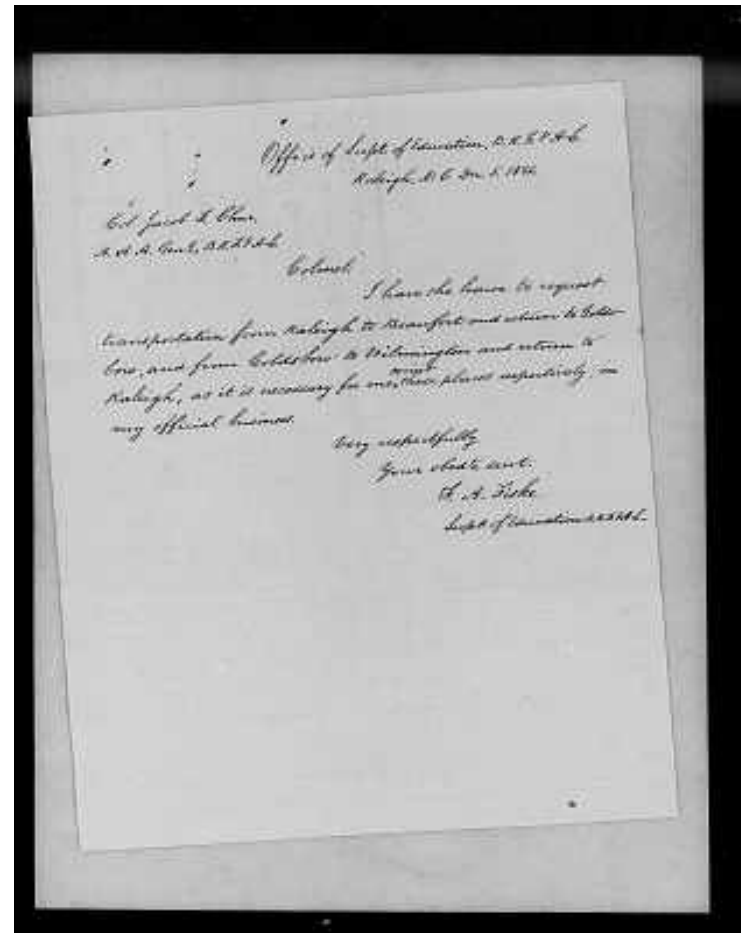 Office of Supt. of Education, B. R. F. & A. L.
Raleigh, N. C. Dec. 5, 1866
Col. Jacob F. Chur,
A. A. A. Genl., B. R. F. & A. L.
Colonel:
I have the honor to request
transportation from Raleigh to Beaufort and return to Golds-
boro, and from Goldsboro to Wilmington and return to
Raleigh, as it is necessary for me, to visit these places respectively, on
my official business.
Very respectfully
Your obedt. servt.
F. A. Fiske
Supt. of Education B.R.F.&A.L.